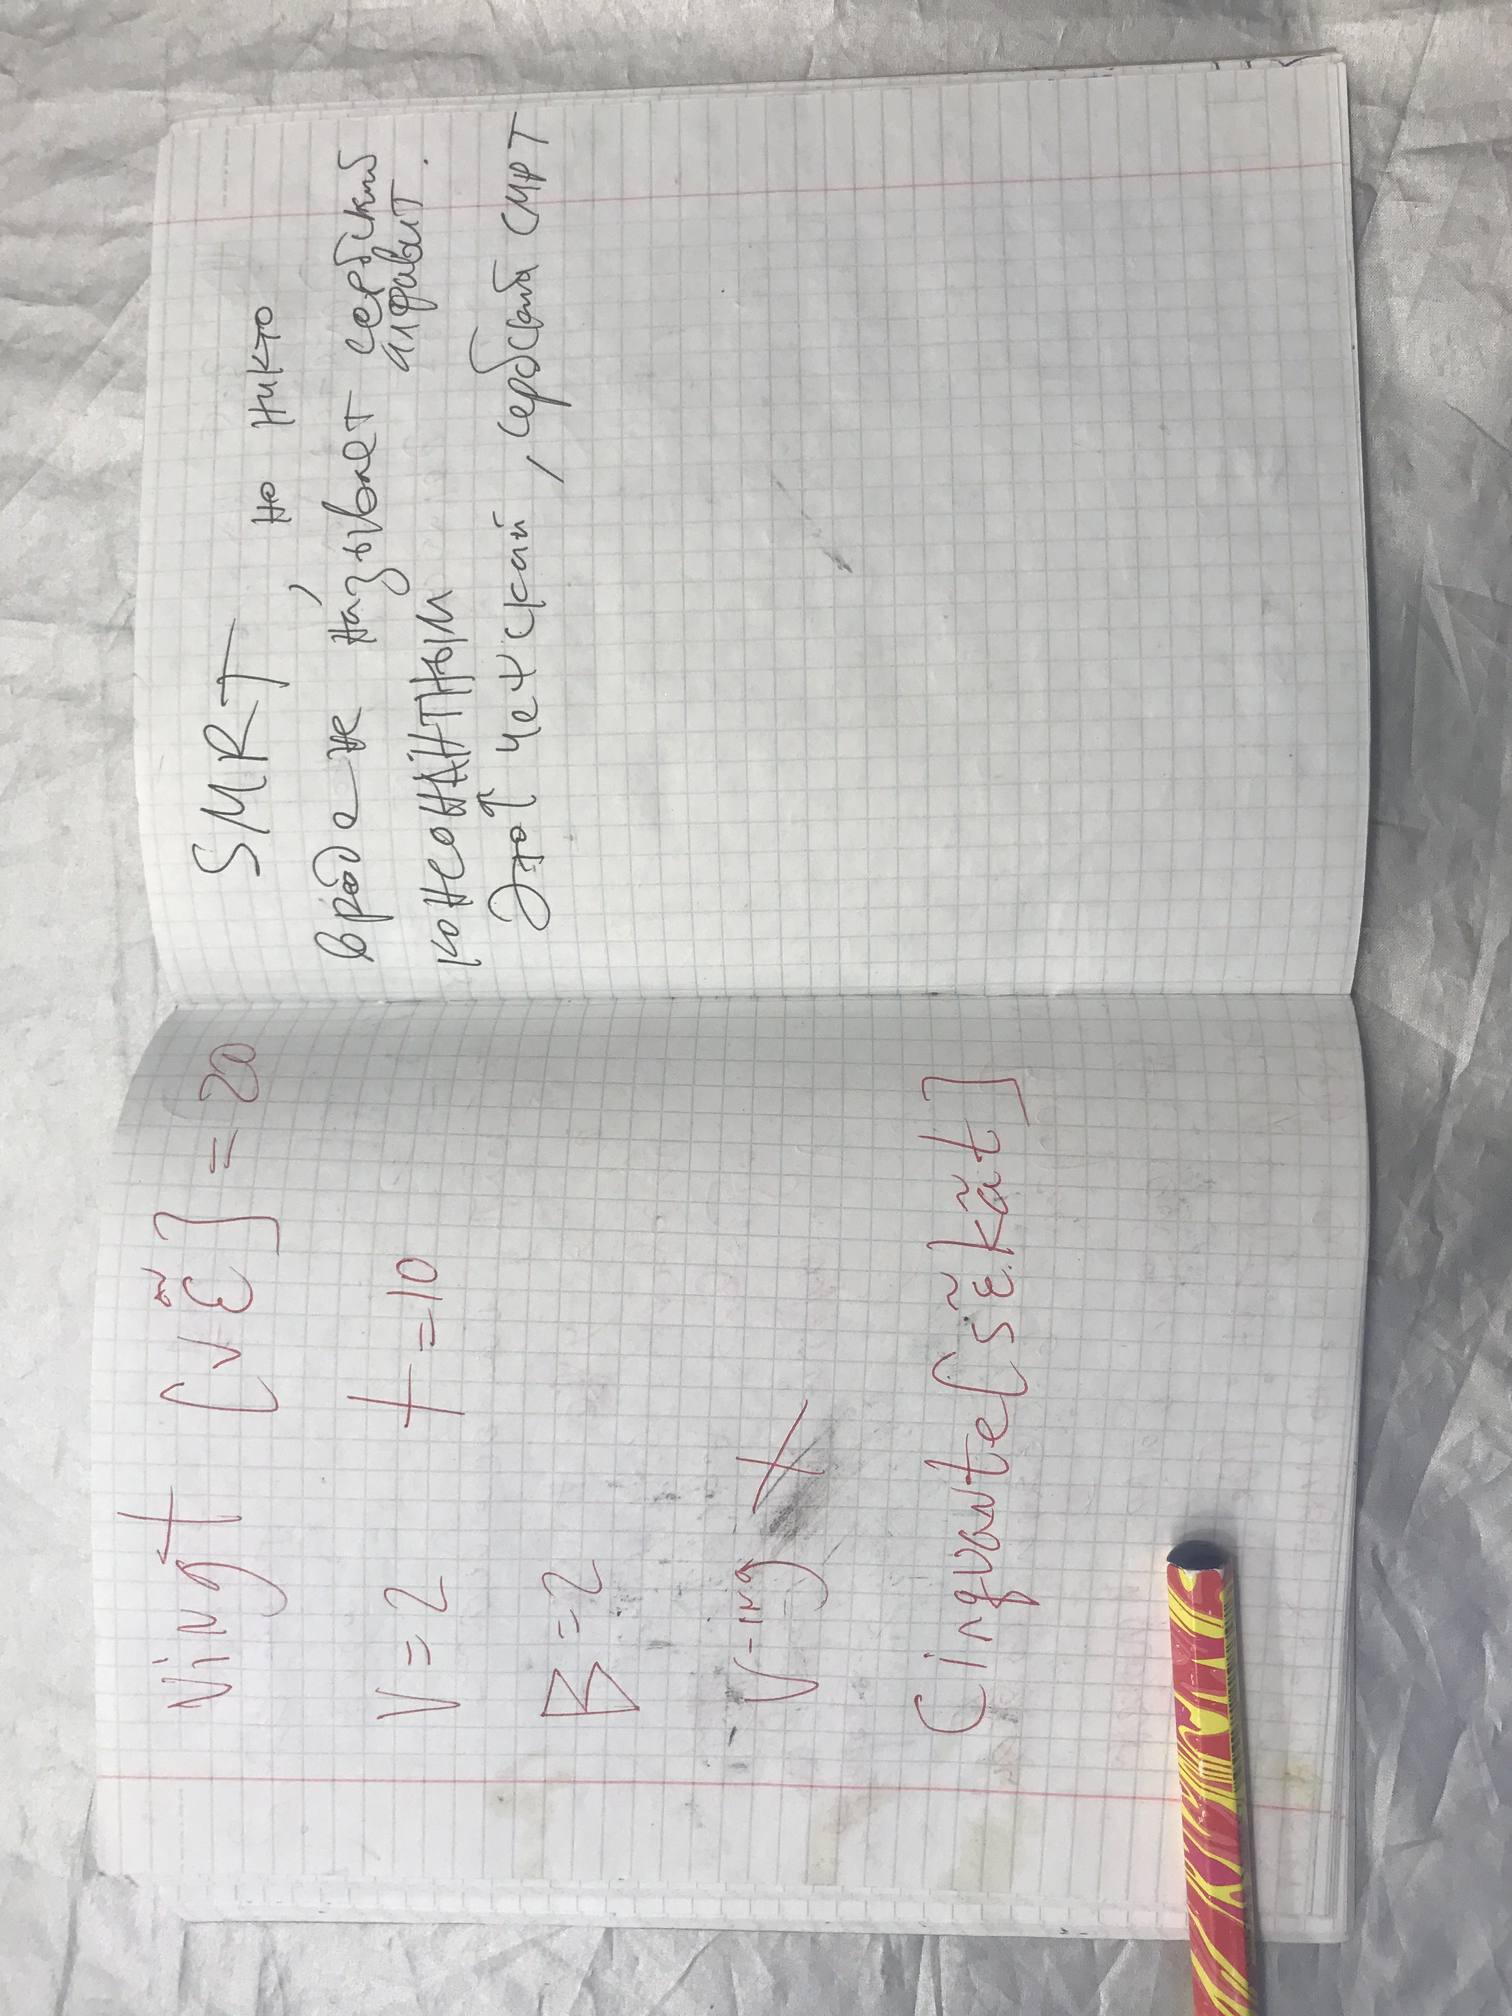 Vingt [vɛ̃] = 20
V = 2 t = 10
B = 2
V-ing t
Cinquante [sɛ̃.kɑ̃t]
SMRT, но никто
вроде не называет сербский
алфавит
консонАНТНЫМ.
Это↑ чешский, сербский СМРТ